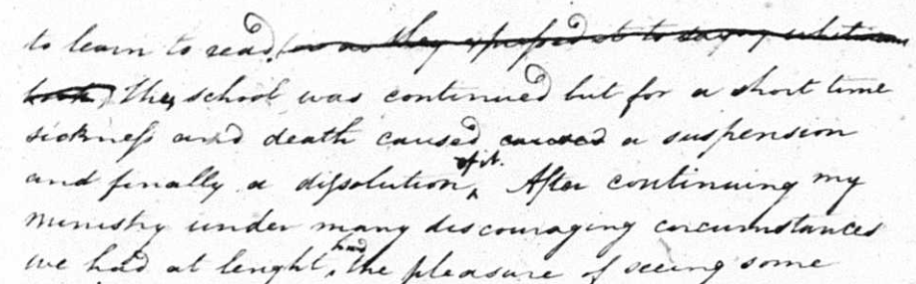 to learn to read (or as they expressed it to say white man
book) the school was continued but for a short time
sickness and death caused caused a suspension
and finally a dissolution ^of it. After continuing my
ministry under many discouraging circumstances
we had at lenght, ^had the pleasure of seeing some